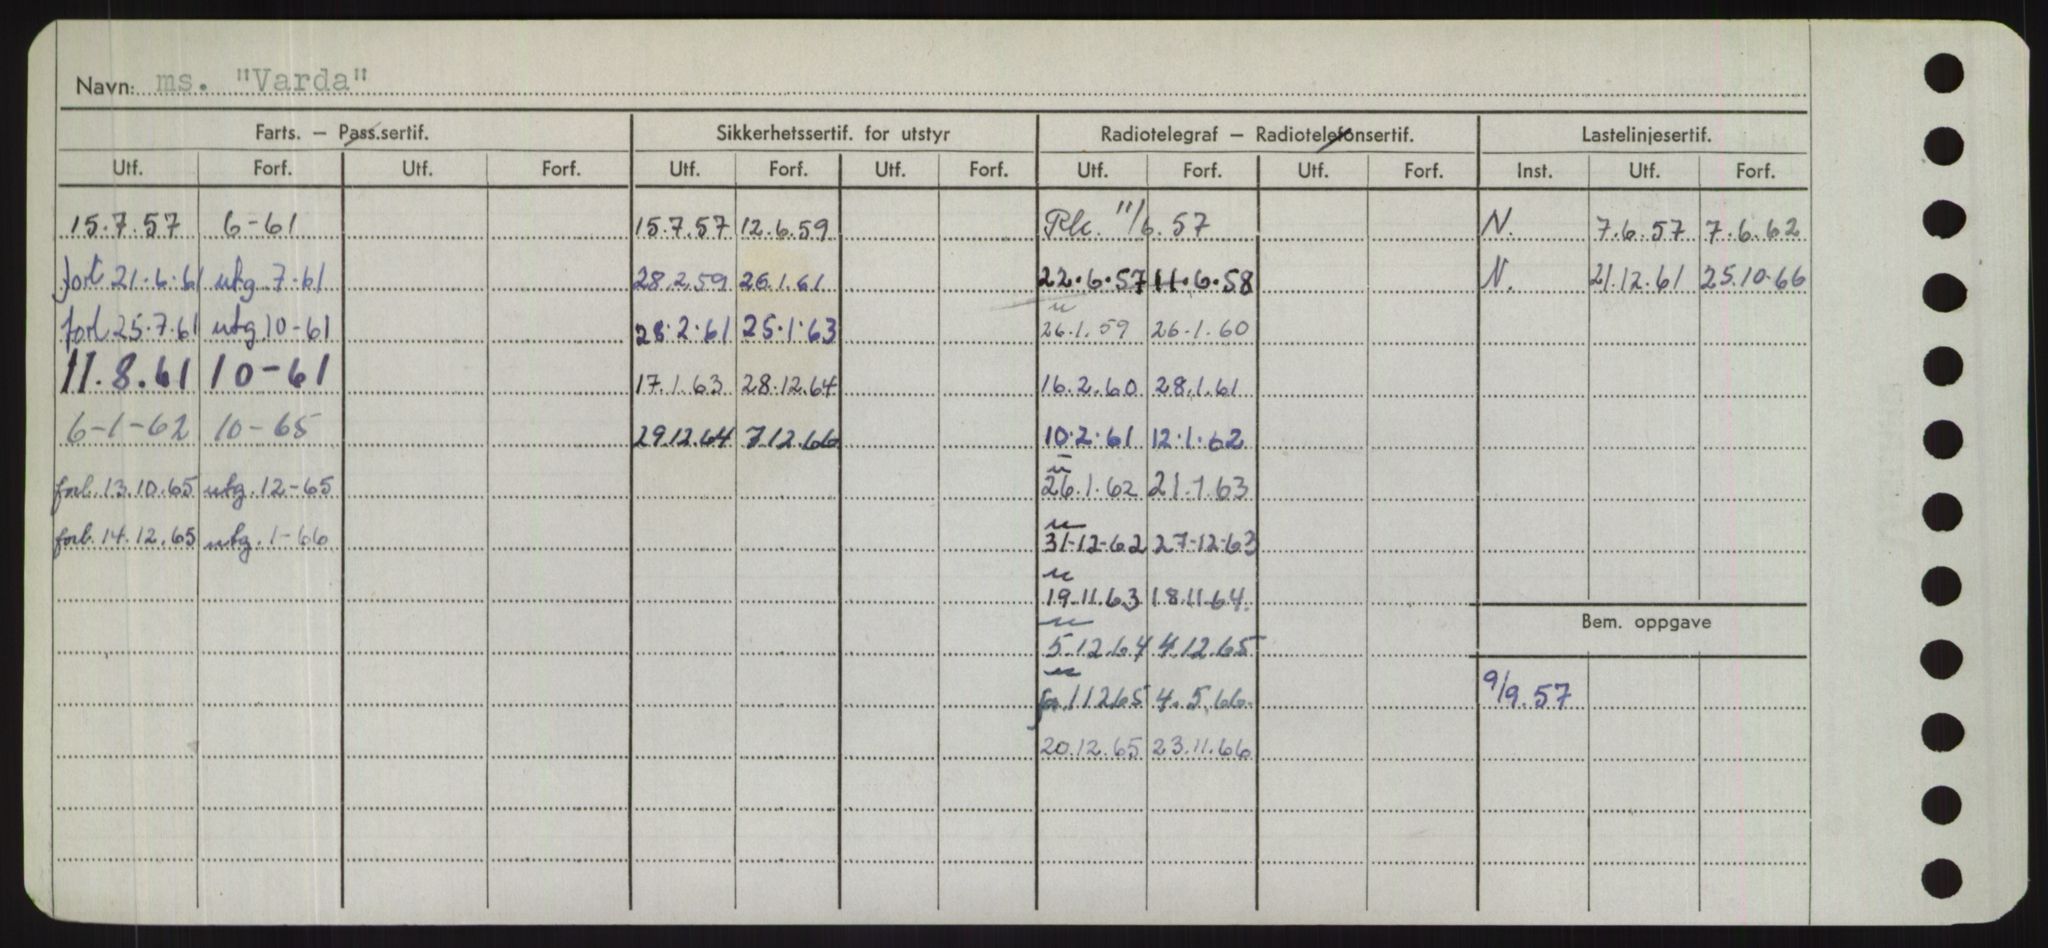 Navn: ms. "Varda"
Farts. — Pass.sertif. Sikkerhetssertif. for utstyr Radiotelegraf — Radiotelefonsertif. Lastelinjesertif.
Utf. Forf. Utf. Forf. Utf. Forf. Utf. Forf. Utf. Forf. Utf. Forf. Inst. Utf. Forf.
15.7.57 6-61 15.7.57 12.6.59 11/6.57 N. 7.6.57 7.6.62
forl 21.6.61 utg 7.61 28.2.59 26.1.61 22.6.57 11.6.58 N. 21.12.61 25.10.66
forl 25.7.61 utg. 10-61 28.2.61 25.1.63 26.1.59 26.1.60
11.8.61 10-61 17.1.63 28.12.64 16.2.60 28.1.61
6-1-62 10-65 29.12.64 7.12.66 10.2.61 12.1.62
forl. 13.10.65 utg. 12-65 26.1.62 21.1.63
forl. 14.12.65 utg. 1-66 31-12-62 27-12-63
19.11.63 18.11.64.
Bem. oppgave
5.12.64 4.12.65
1.12.65 4.5.66. 9/9.57
20.12.65 23.11.66